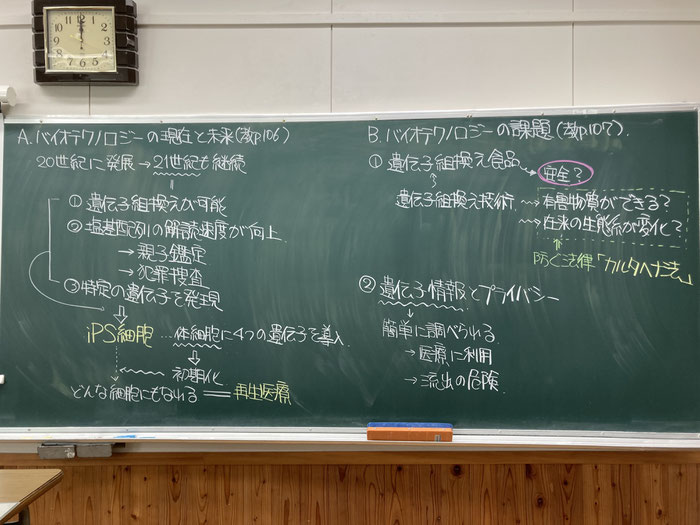 12
11
1
10
2
9
3
8
4
7
5
6
A. バイオテクノロジーの現在と未来(教p.106)
20世紀に発展→21世紀も継続
①遺伝子組換えが可能
②塩基配列の解読速度が向上
→親子鑑定
→犯罪捜査
③特定の遺伝子を発現
iPS細胞…体細胞に4つの遺伝子を導入
初期化
どんな細胞にもなれる＝再生医療
B. バイオテクノロジーの課題(教p.107).
①遺伝子組換え食品
安全?
遺伝子組換え技術
有害物質ができる?
在来の生態系が変化?
防ぐ法律「カルタヘナ法」
②遺伝子情報とプライバシー
簡単に調べられる
→医療に利用
→流出の危険